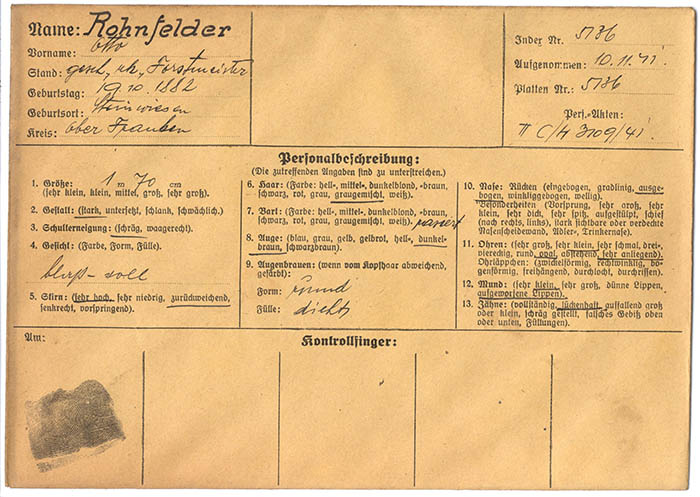 Name: Rohnfelder
Vorname: Otto
Stand: gesch. rk. Forstmeister
Geburtstag: 19.10.1882
Geburtsort: Steinwiesen
Kreis: Ober Franken
Index Nr. 5136
Aufgenommen: 10.11.41.
Platten Nr. 5136
Pers.-Akten:
II C/H 3109/41.
Personalbeschreibung:
(Die zutreffenden Angaben sind zu unterstreichen.)
1. Größe: 1 m 70 cm
(sehr klein, klein, mittel, groß, sehr groß).
2. Gestalt: (stark, untersetzt, schlank, schwächlich.)
3. Schulterneigung: (schräg, waagerecht.)
4. Gesicht: (Farbe, Form, Fülle).
blaß - voll
5. Stirn: (sehr hoch, sehr niedrig, zurückweichend,
senkrecht, vorspringend).
6. Haar: (Farbe: hell-, mittel-, dunkelblond, -braun,
schwarz, rot, grau, graugemischt, weiß).
7. Bart: (Farbe: hell-, mittel-, dunkelblond, -braun,
schwarz, rot, grau, graugemischt, weiß). rasiert
8. Auge: (blau, grau, gelb, gelbrot, hell-, dunkel-
braun, schwarzbraun).
9. Augenbrauen: (wenn vom Kopfhaar abweichend,
gefärbt):
Form: rund
Fülle: dicht
10. Nase: Rücken (eingebogen, gradlinig, ausge-
bogen, winkliggebogen, wellig).
Besonderheiten (Vorsprung, sehr groß, sehr
klein, sehr dick, sehr spitz, aufgestülpt, schief
(nach rechts, links), stark sichtbare oder verdeckte
Nasenscheidewand, Adler-, Trinkernase).
11. Ohren: (sehr groß, sehr klein, sehr schmal, drei-
viereckig, rund, oval, abstehend, sehr anliegend).
Ohrläppchen: (zwickelförmig, rechtwinklig, bo-
genförmig, freihängend, durchlocht, durchrissen).
12. Mund: (sehr klein, sehr groß, dünne Lippen,
aufgeworfene Lippen).
13. Zähne: (vollständig, lückenhaft, auffallend groß
oder klein, schräg gestellt, falsches Gebiß oben
oder unten, Füllungen).
Am:
Kontrollfinger: